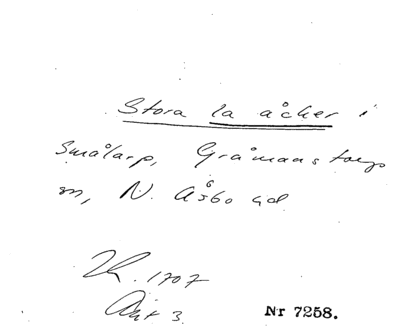 Stora la åcker i
Smålarp, Gråmanstorps
sn, N. Åsbo hd
K. 1707
Akt 3.
Nr 7258.